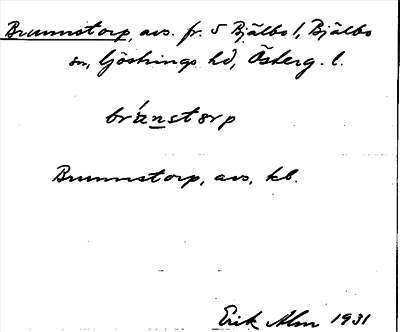 Brunnstorp, avs. fr. 5 Bjälbo 1, Bjälbo
sn, Göstrings hd, Österg. l.
bránstorp
Brunnstorp, avs, kb.
Erik Alm 1931